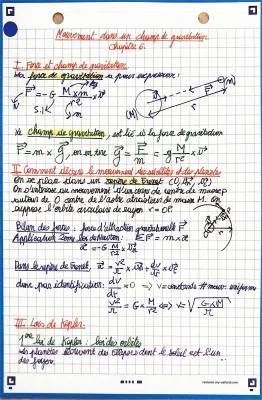 Mouvement dans un champ de gravitation
Chapitre 6.
I. Force et champ de gravitation.
La force de gravitation a pour expression :
F = -G M x m / r² x u
N
S.I
Le champ de gravitation, est lié à la force de gravitation
F = m x g, en entre g = F/m = -g M/r² x u
II Comment décrire le mouvement des satellites et des planètes
On se place dans un repère de Frenet (O, ut, un)
On s'intéresse au mouvement d'un corps de centre de masse P
autour de O centre de l'astre attracteur de masse M. On
suppose l'orbite circulaire de rayon r = OP.
Bilan des forces : force d'attraction gravitationnelle F
Application 2ème loi de Newton : ΣF = m x a
Dans le repère de Frenet, a = v²/r x un + dv/dt x ut
donc par identification : dv/dt = 0 => v = constante => mouv. uniforme
v²/r = G x M/r² <=> v = √(G x M / r)
III. Lois de Kepler.
1ère loi de Kepler : loi des orbites
Les planètes décrivent des ellipses dont le soleil est l'un
des foyers.